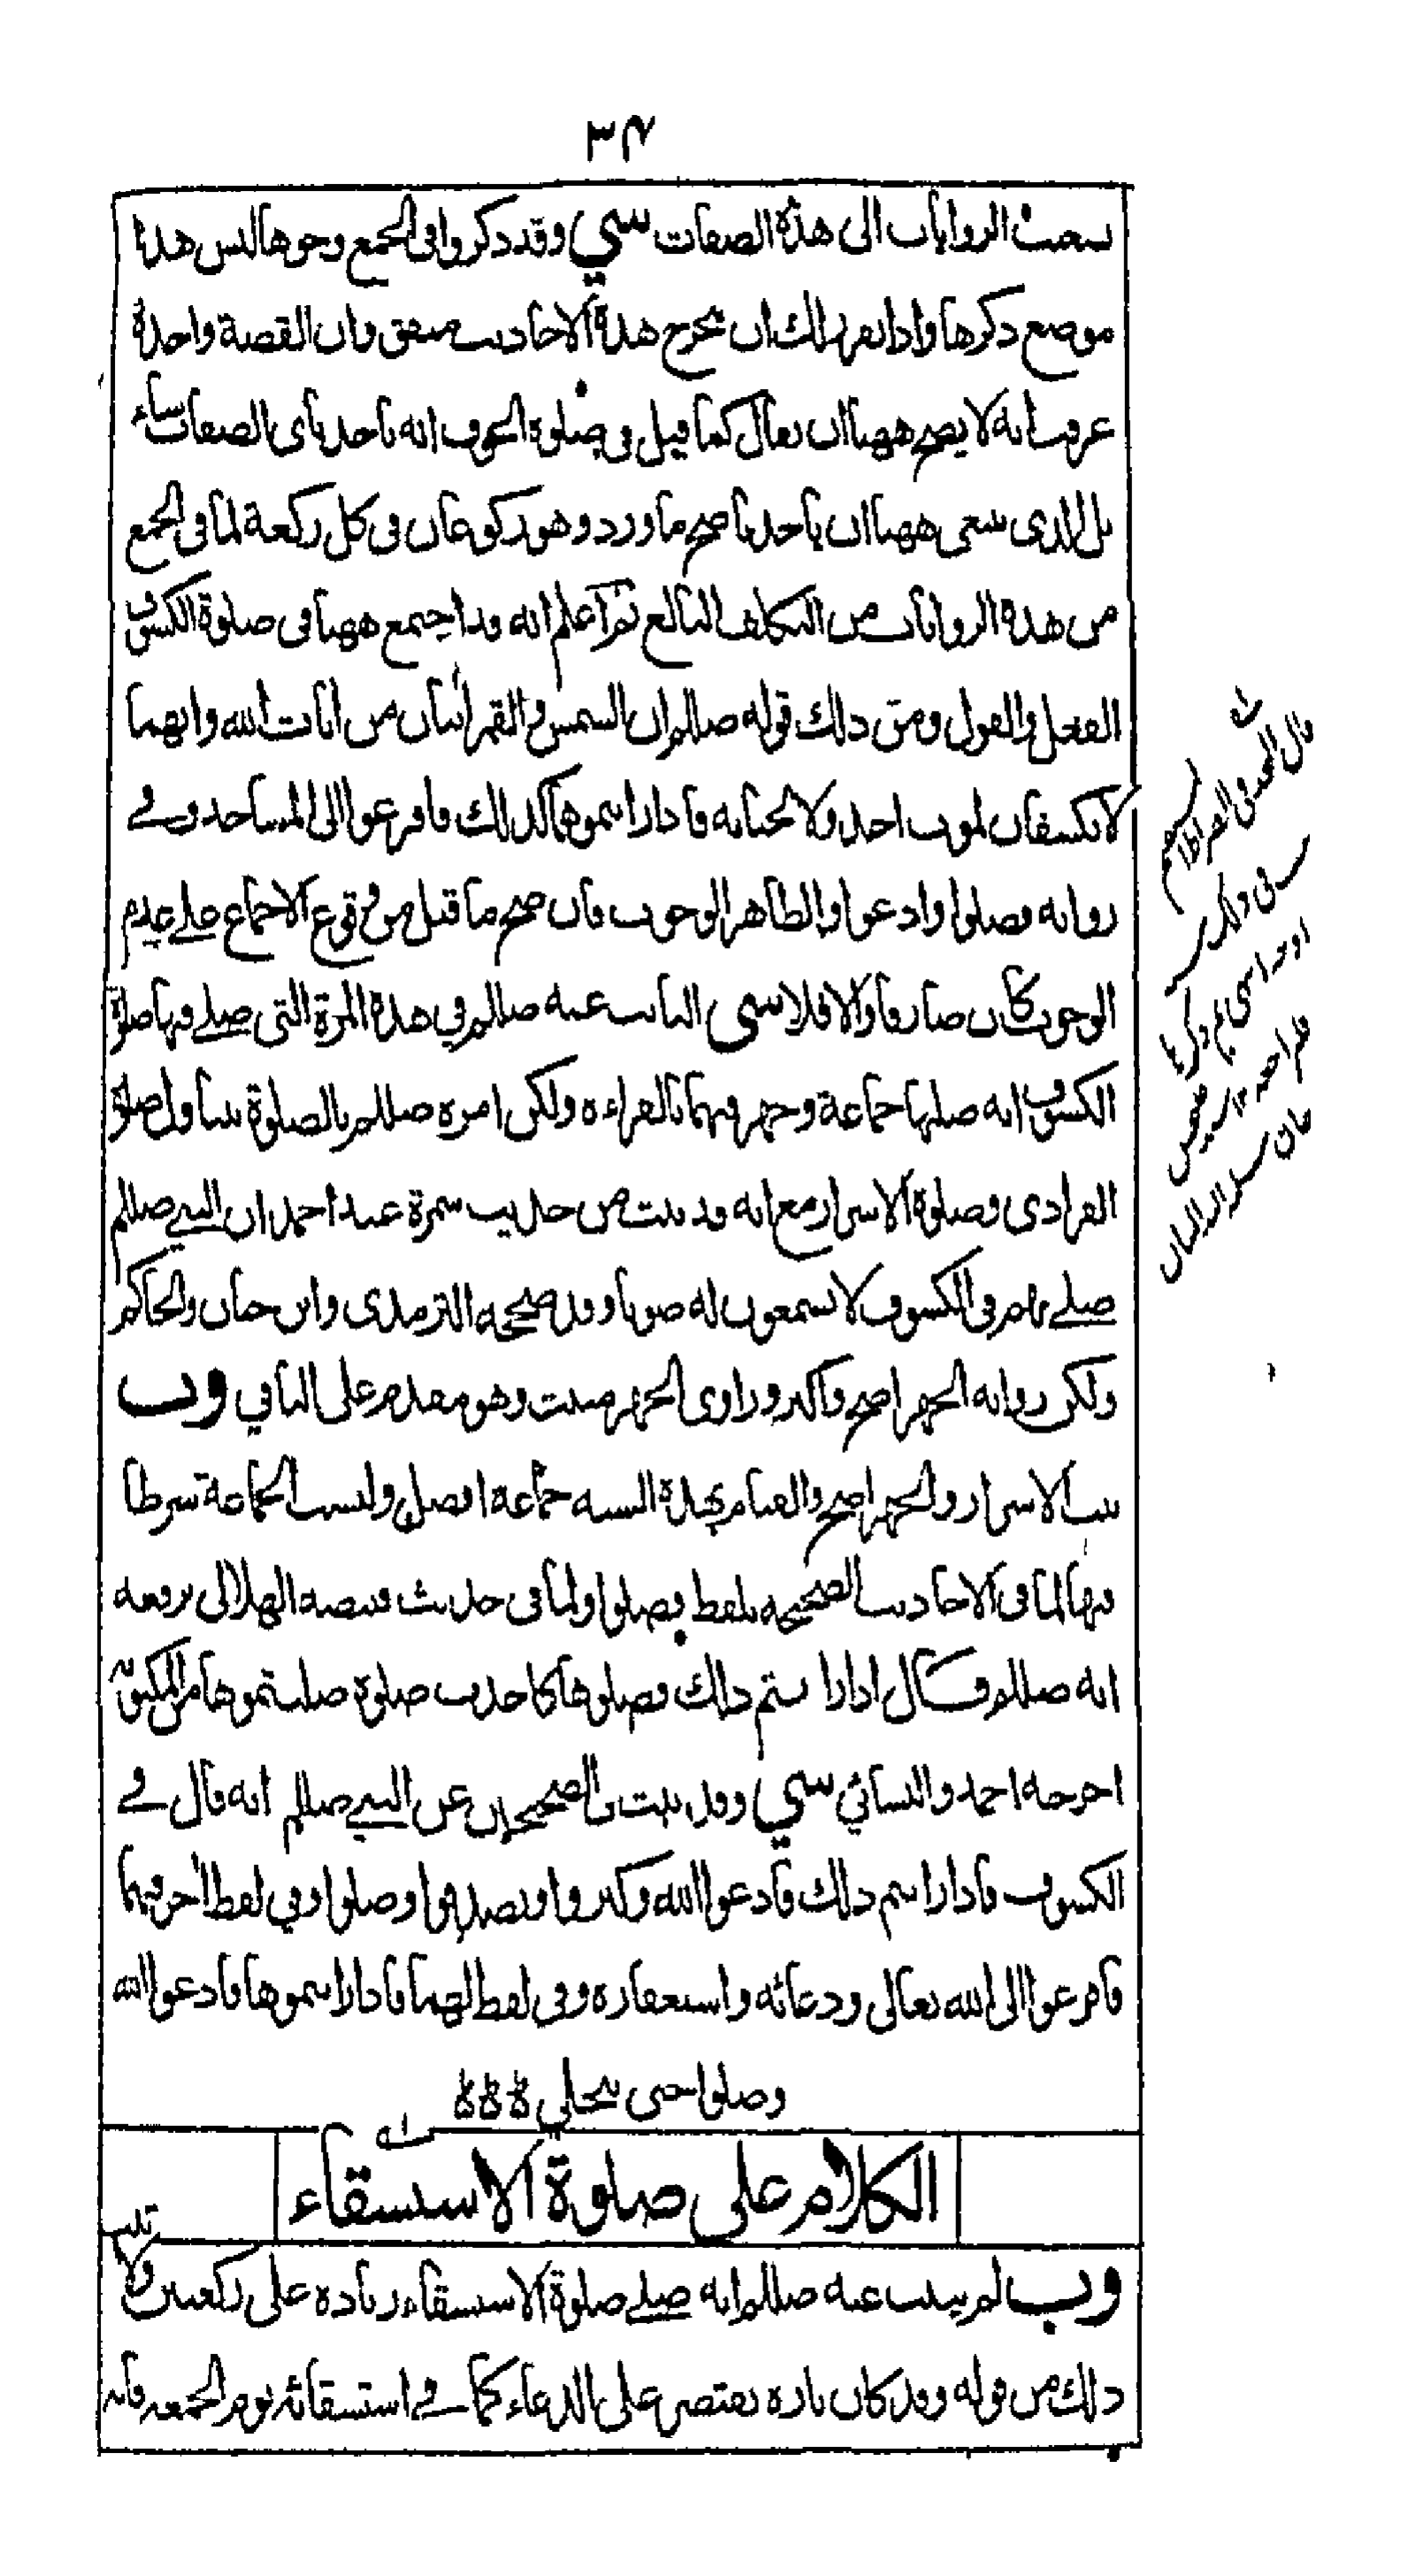 ٣٤
تشعبت الروايات الى هذه الصفات سي وقد ذكروا في الجمع وجوها ليس هذا
موضع ذكرها واذا تقرر لك ان مخرج هذه الاحاديث متفق وان القصة واحدة
عرفت انه لا يصح ههنا ان يقال كما قيل في صلوة الخوف انه ياخذ باى الصفات شاء
بل الذى ينبغي ههنا ان ياخذ باصح ما ورد وهو ركوعان في كل ركعة لما في الجمع
من هذه الروايات من التكلف البالغ ثم اعلم انه قد اجتمع ههنا في صلوة الكسوف
الفعل والقول ومن ذلك قوله صللم ان الشمس والقمر ايتان من ايات الله وانهما
لا تكسفان لموت احد ولا لحياته فاذا رايتموها كذلك فافزعوا الى المساجد وفي
رواية فصلوا وادعوا والظاهر الوجوب فان صح ما قيل من وقوع الاجماع على عدم
الوجوب كان صارفا والا فلا سي الثابت عنه صللم في هذه المرة التي صلى فيها صلوة
الكسوف انه صلها جماعة وجهر فيها بالقراءه ولكن امره صللم بالصلوة يتناول صلوة
الفرادى وصلوة الاسرار مع انه قد ثبت من حديث سمرة عند احمد ان النبي صللم
صلى بهم في الكسوف لا يسمعون له صوتا وقد صححه الترمذى وابن حبان والحاكم
ولكن رواية الجهر اصح واكثر وراوى الجهر مثبت وهو مقدم على النافي وب
ثبت الاسرار والجهر اصح والقيام بهذة السنه جماعة افضل وليست الجماعة شرطا
فيها لما في الاحاديث الصحيحه بلفظ فصلوا ولما في حديث قبيصه الهلالى يرفعه
انه صللم قال اذا رايتم ذلك فصلوها كاحدث صلوة صليتموها من المكتوبة
اخرجه احمد والنسائي سي وقد ثبت في الصحيحين عن النبي صللم انه قال في
الكسوف فاذا رايتم ذلك فادعوا الله وكبروا وتصدقوا وصلوا وفي لفظ اخر فيهما
فافزعوا الى الله تعالى ودعائه واستغفاره وفي لفظ لهما فاذا رايتموها فادعوا الله
وصلوا حتى ينجلي
الكلام على صلوة الاستسقاء
وب لم يثبت عنه صللم انه صلى صلوة الاستسقاء زيادة على ركعتين ولا ثبت
ذلك من قوله وقد كان تارة يقتصر على الدعاء كما في استسقائه يوم الجمعه فانه